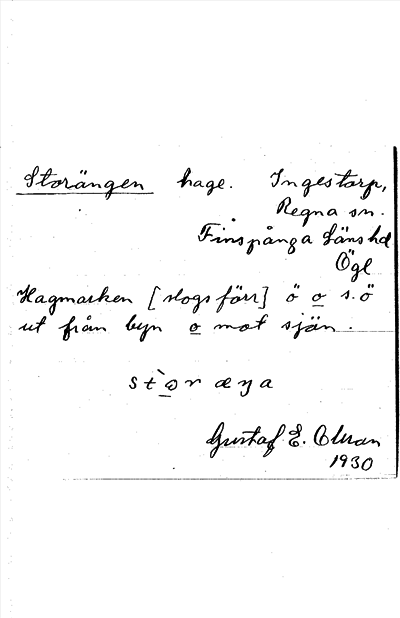 Storängen hage. Ingestorp,
Regna sn.
Finspånga läns hd
Ögl
Hagmarken [slogs förr] ö o s.ö
ut från byn o mot sjön.
Gustaf E.
1930